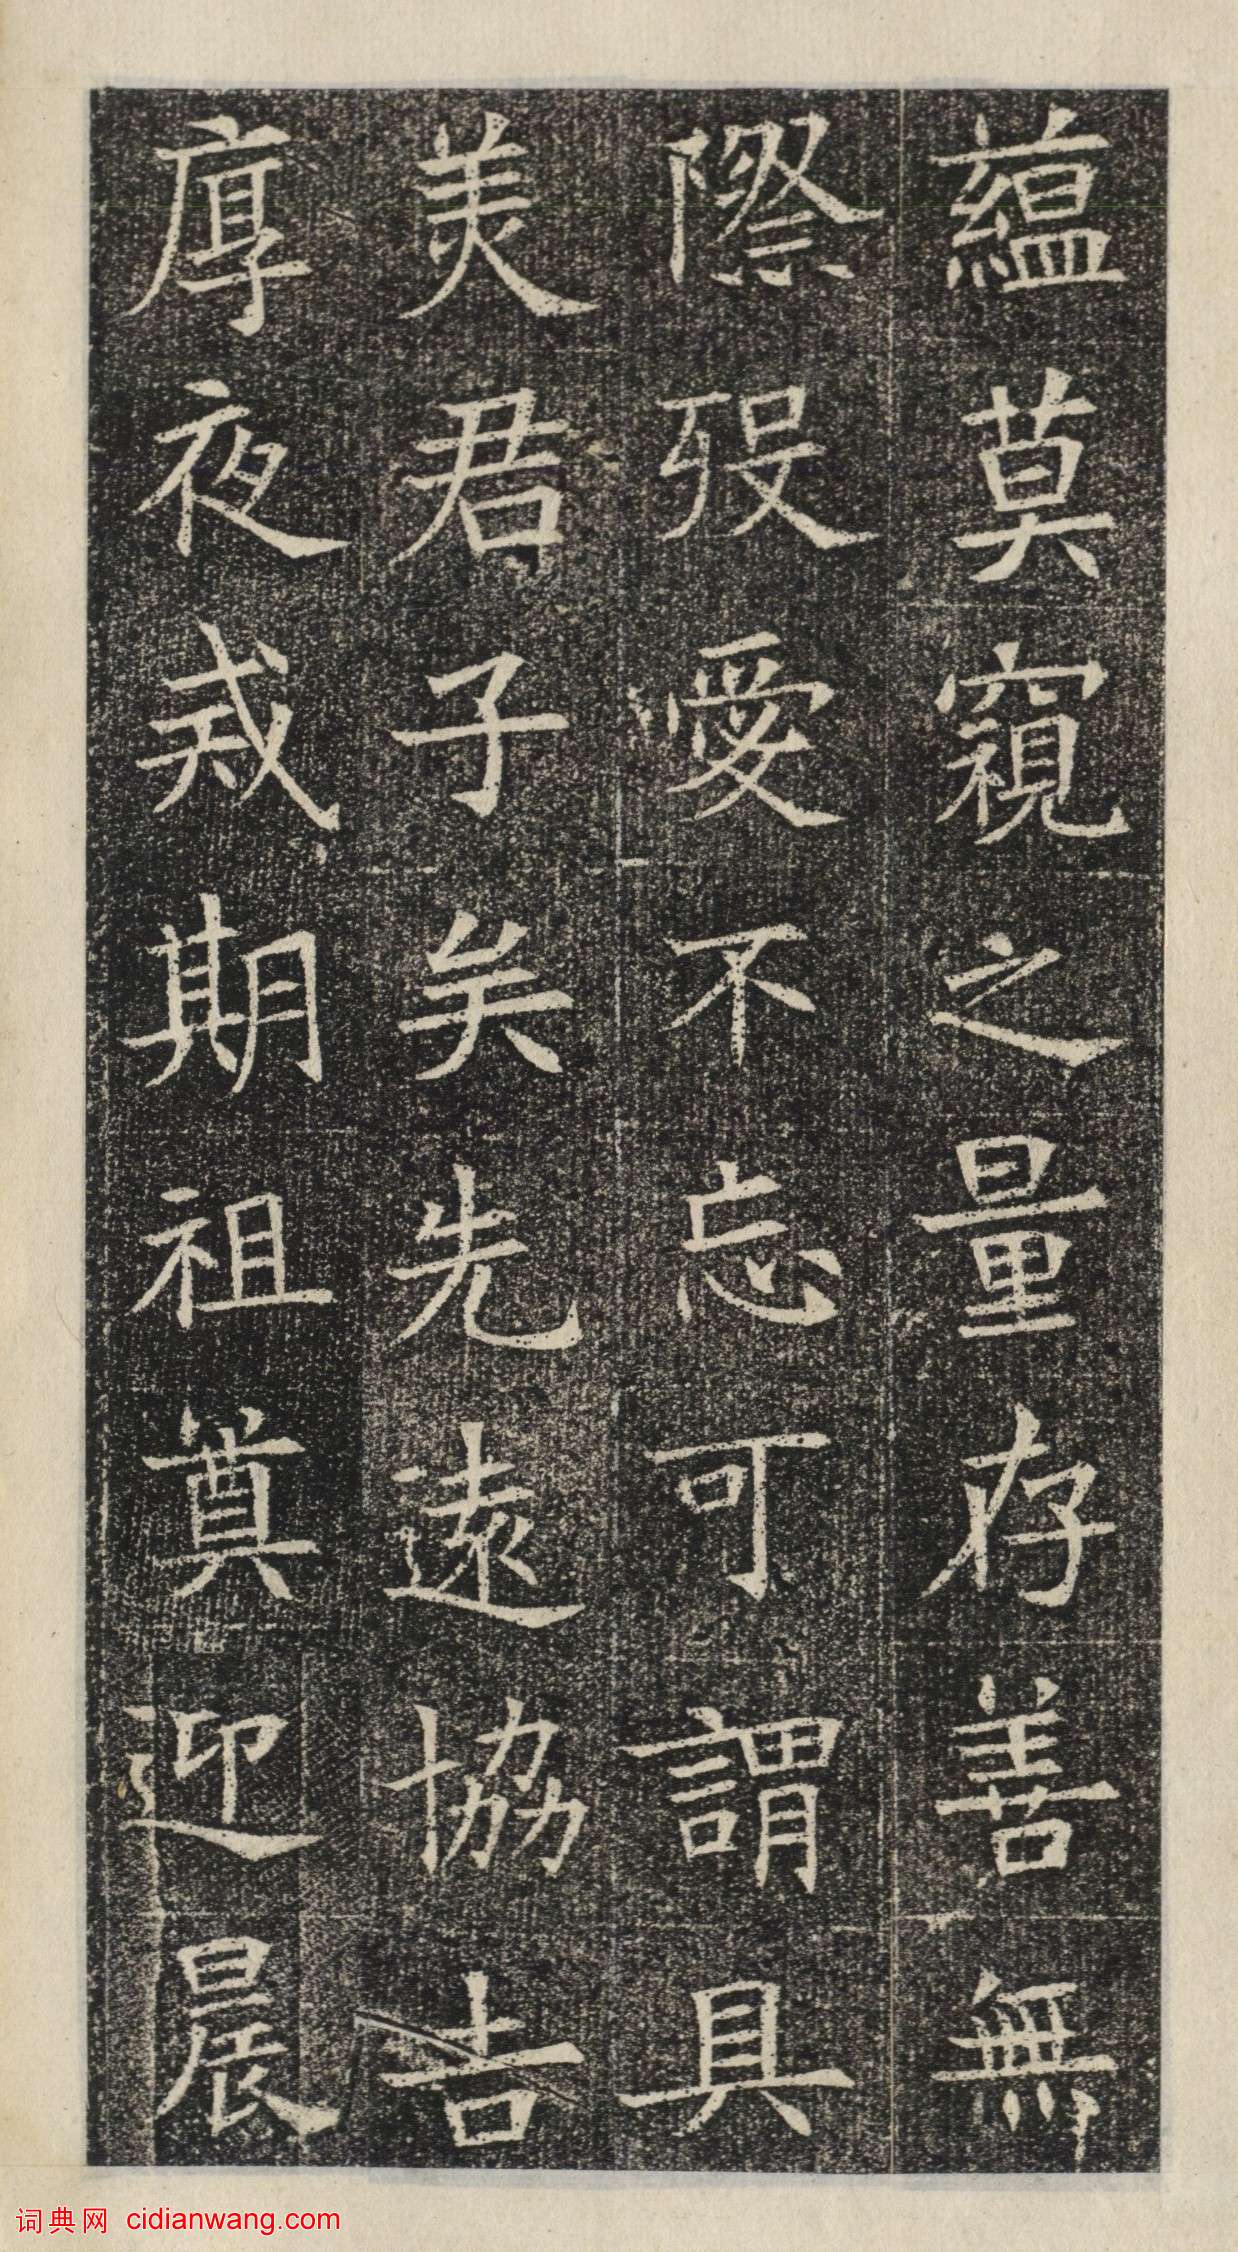 蘊莫窺之量存善無
際歿愛不忘可謂具
美君子矣先遠協吉
厚夜戒期祖奠迎晨
词典网 cidianwang.com